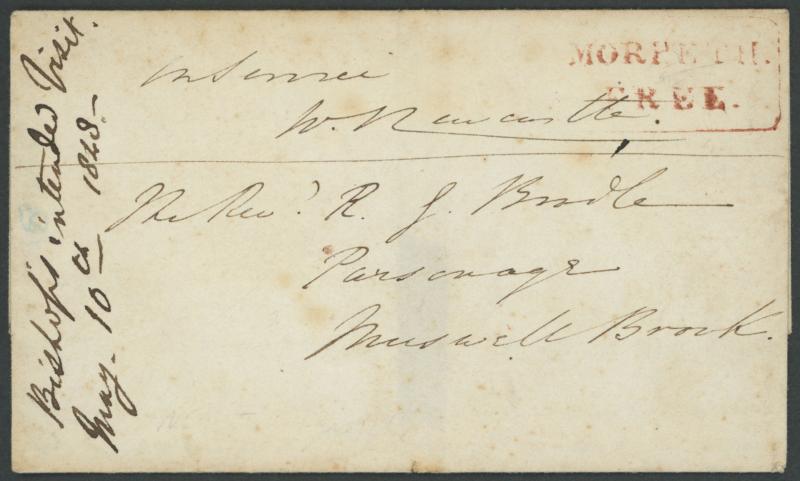 MORPETH.
FREE.
On Service
W. Newcastle.
The Revd. R. G. Boodle
Parsonage
Muswell Brook.
Bishop's intended Visit.
May. 10 1848.